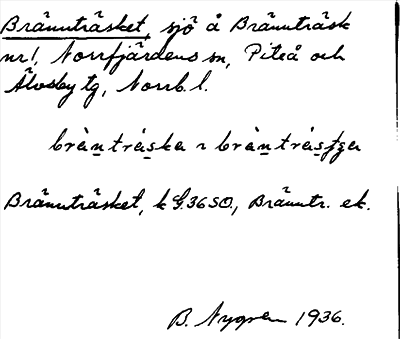 Brännträsket, sjö å Brännträsk
nr 1, Norrfjärdens sn, Piteå och
Älvsby tg, Norrb. l.
bràntráska ~ bràntrásʃʒa
Brännträsket, k G.36SO., Bränntr. ek.
B. Nygren 1936.